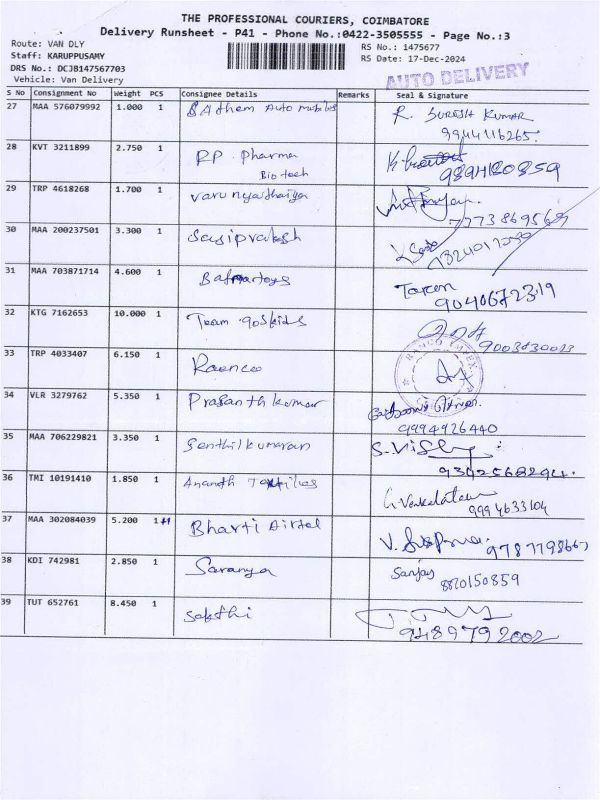 THE PROFESSIONAL COURIERS, COIMBATORE
Delivery Runsheet - P41 - Phone No.:0422-3505555 - Page No.:3
Route: VAN DLY
RS No.: 1475677
Staff: KARUPPUSAMY
RS Date: 17-Dec-2024
DRS No.: DCJB147567703
AUTO DELIVERY
Vehicle: Van Delivery
S No Consignment No Weight PCS Consignee Details Remarks Seal & Signature
27 MAA 576079992 1.000 1 Auto mobiles R. SURESH KUMAR
9944116265.
28 KVT 3211899 2.750 1 RP. Pharma
Bio tech
29 TRP 4618268 1.700 1
7773869569
30 MAA 200237501 3.300 1 Sasiprakash
31 MAA 703871714 4.600 1
9040672319
32 KTG 7162653 10.000 1 Team
33 TRP 4033407 6.150 1 Raenco
34 VLR 3279762 5.350 1 Prasanth kumar
9994926440
35 MAA 706229821 3.350 1 Senthilkumaran
36 TMI 10191410 1.850 1 Ananth
9994633104
37 MAA 302084039 5.200 1 Bharti Airtel
38 KDI 742981 2.850 1 Saranya Sanjay
8820150859
39 TUT 652761 8.450 1 Sakthi
9489792002